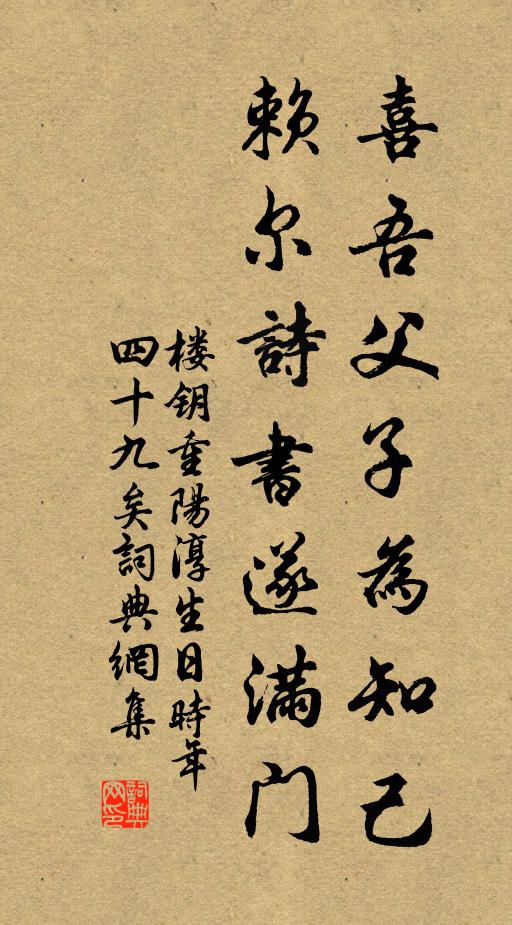 喜吾父子為知己
賴尔詩書遂满门
楼钥重陽淳生日時年
四十九矣詞典網集
詞典网印